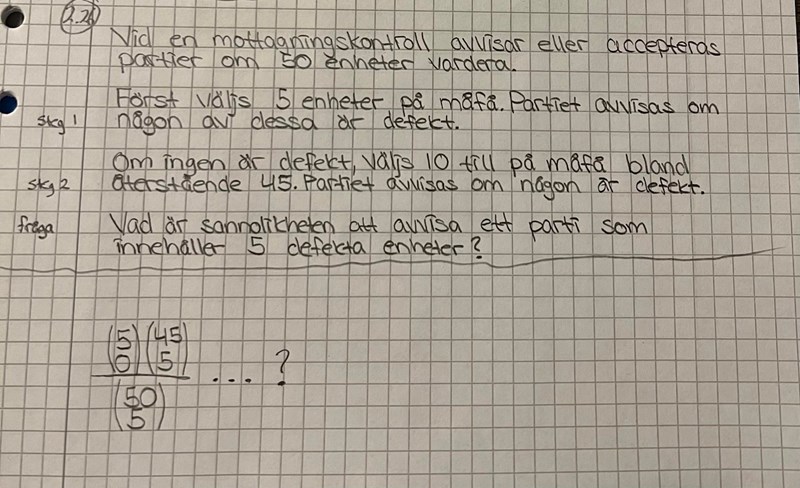 2.26
Vid en mottagningskontroll avvisar eller accepteras
partier om 50 enheter vardera.
Först väljs 5 enheter på måfå. Partiet avvisas om
steg 1 någon av dessa är defekt.
Om ingen är defekt, väljs 10 till på måfå bland
steg 2 återstående 45. Partiet avvisas om någon är defekt.
fråga Vad är sannolikheten att avvisa ett parti som
innehåller 5 defekta enheter?
(5 0)(45 5) / (50 5) ... ?